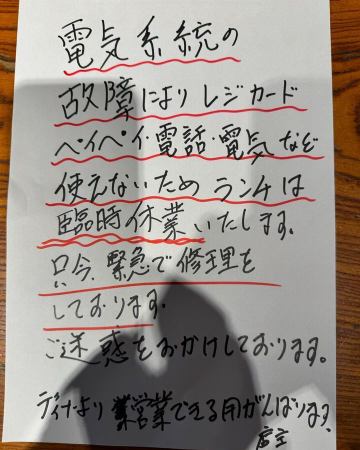 電気系統の
故障によりレジカード
ペイペイ・電話・電気など
使えないためランチは
臨時休業いたします。
只今、緊急で修理を
しております。
ご迷惑をおかけしております。
ディナーより営業できる用がんばります。
店主